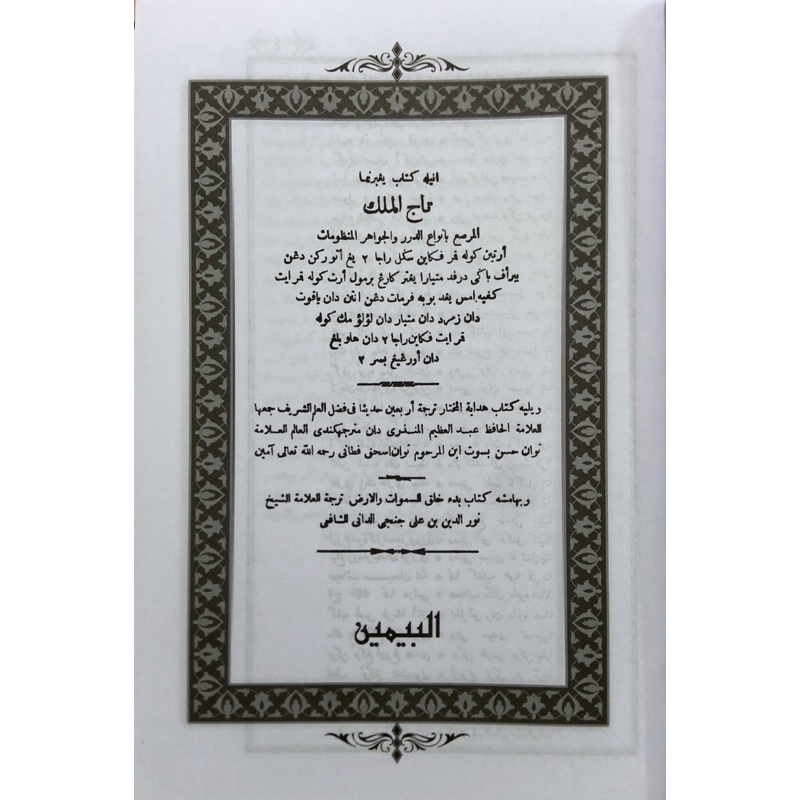 انيله كتاب يڠبرنما
تاج الملك
المرصع بانواع الدرر والجواهر المنظومات
أرتين كوله قمر فكاين سكل راجا ٢ يڠ أتورکن دڠن
ببراڤ باكى درفد متيارا يڠتر كارڠ برمول أرت كوله قمر ايت
كفيه امس يڠد بوبه فرمات دڠن انتن دان ياقوت
دان زمرد دان متيار دان لؤلؤ مك كوله
قمر ايت فكاين راجا ٢ دان هلو بلڠ
دان أورڠيڠ بسر ٢
ويليه كتاب هداية المختار ترجمة أربعين حديثا فى فضل العلم الشريف جمعها
للعلامة الحافظ عبد العظيم المنذرى دان مترجمهكندى العالم العلامة
توان حسن بسوت ابن المرحوم توان اسحق فطانى رحمه الله تعالى آمين
وبهامشه كتاب بدء خلق السموات والارض ترجمة العلامة الشيخ
نور الدين بن على جنجى الدانى الشافعى
البيمين